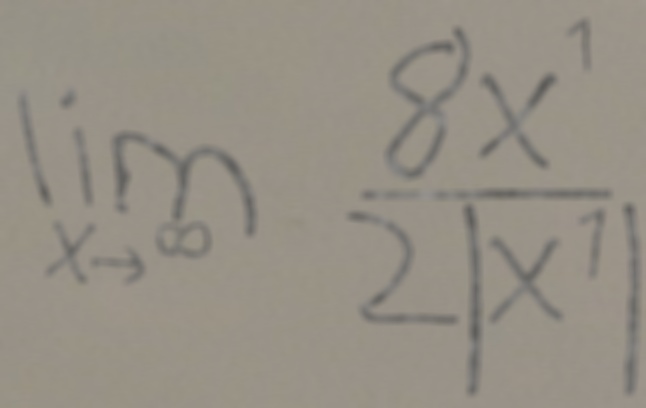 lim x→∞ 8x^1 / 2|x^1|